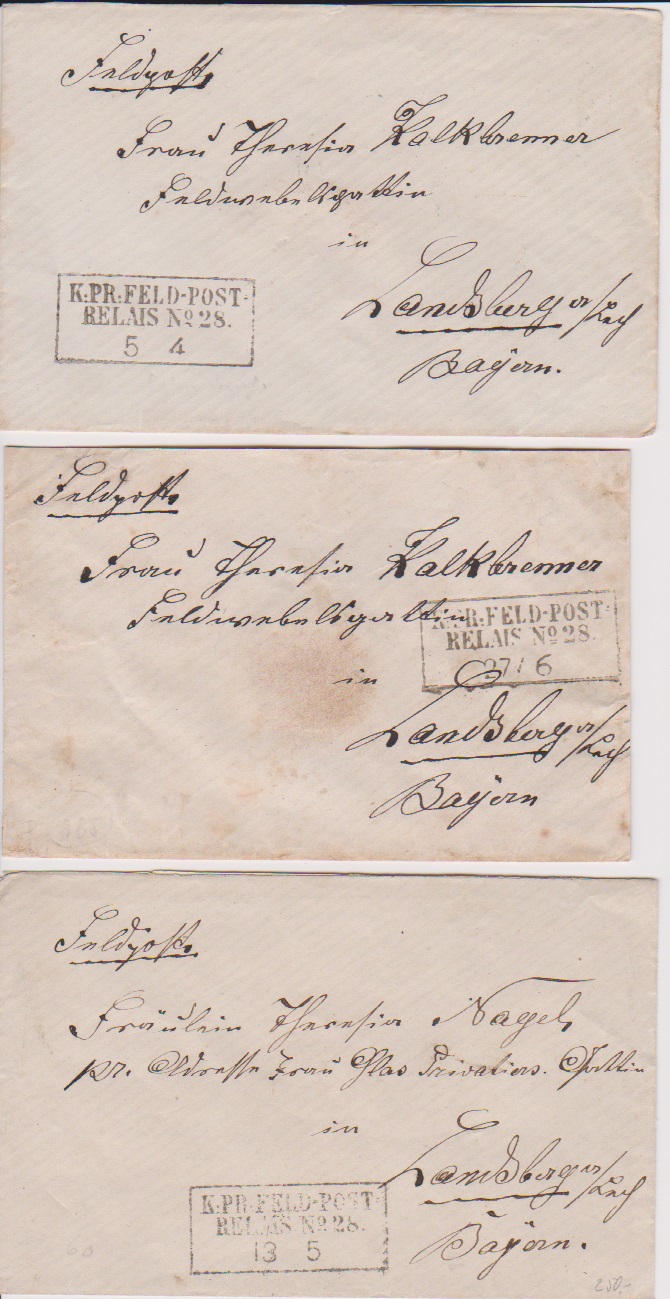 Feldpost.
Frau Theresia Kalkbrenner
Feldwebelsgattin
in
Landsberg a/Lech
Bayern.
K:PR:FELD-POST-
RELAIS No 28.
5 4
Feldpost.
Frau Theresia Kalkbrenner
Feldwebelsgattin
K:PR:FELD-POST-
RELAIS No 28.
27/ 6
in
Landsberg a/Lech
Bayern
Feldpost.
Fräulein Theresia Nagel,
pr. Adresse Frau Glas Privatiers. Gattin
in
Landsberg a/Lech
Bayern.
K:PR:FELD-POST-
RELAIS No 28.
13 5
60
250,-